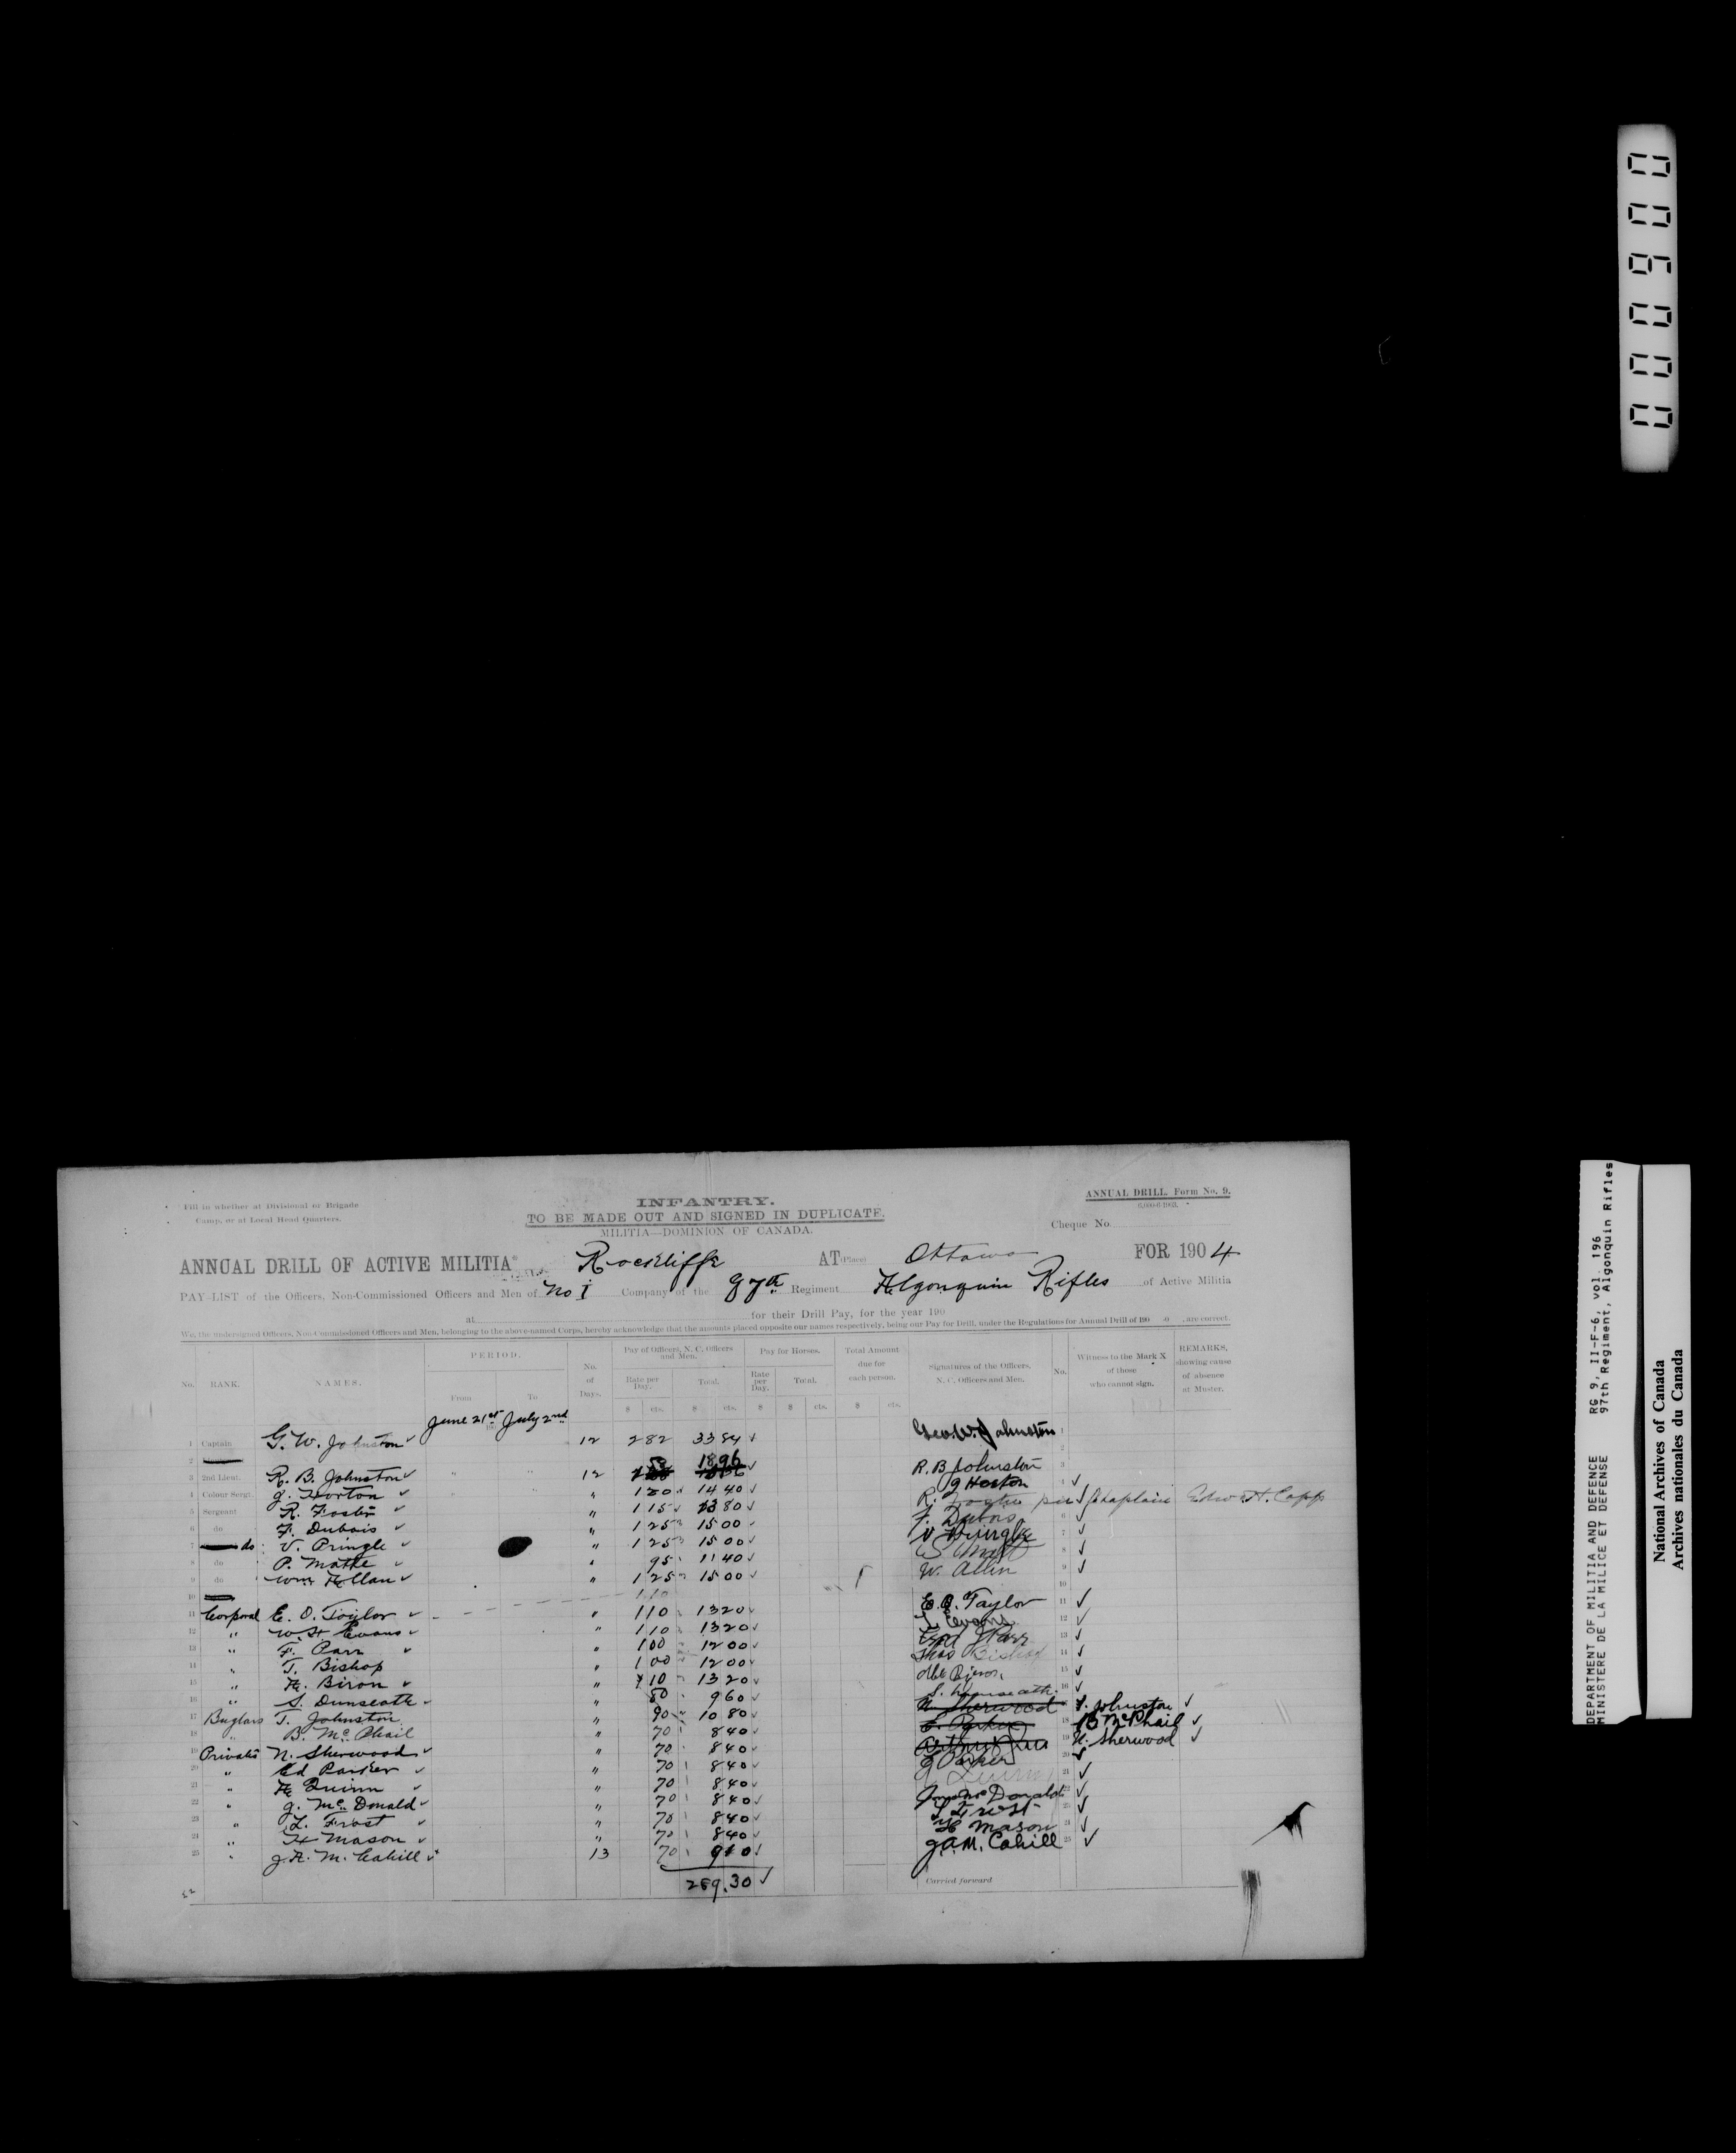 000000
Fill in whether at Divisional or Brigade
Camp, or at Local Head Quarters.
INFANTRY.
TO BE MADE OUT AND SIGNED IN DUPLICATE.
MILITIA—DOMINION OF CANADA.
ANNUAL DRILL Form No. 9.
Cheque No
ANNUAL DRILL OF ACTIVE MILITIA Rockliffe AT (Place) Ottawa FOR 1904
PAY-LIST of the Officers, Non-Commissioned Officers and Men of No 1 Company of the 97th Regiment Algonquin Rifles of Active Militia
at for their Drill Pay, for the year 190
We, the undersigned Officers, Non-Commissioned Officers and Men, belonging to the above-named Corps, hereby acknowledge that the amounts placed opposite our names respectively, being our Pay for Drill, under the Regulations for Annual Drill of 190 , are correct.
No. RANK. NAMES. PERIOD. From To No. of Days. Pay of Officers, N. C. Officers and Men. Rate per Day. Total. Pay for Horses. Rate per Day. Total. Total Amount due for each person. Signatures of the Officers, N. C. Officers and Men. No. Witness to the Mark X of those who cannot sign. REMARKS, showing cause of absence at Muster.
$ cts. $ cts. $ $ cts. $ cts.
June 21st July 2nd
1 Captain G. W. Johnston ✓ 12 2 82 33 84 ✓ Geo. W. Johnston 1
2
3 2nd Lieut. R. B. Johnston ✓ " " 12 18 96 ✓ R. B Johnston 3
4 Colour Sergt. G. Horton ✓ " " " 1 20 14 40 ✓ G Horton 4 ✓
5 Sergeant R. Foster ✓ " 1 15 13 80 ✓ R. Foster per Chaplain Edw. H. Capp
6 do F. Dubois ✓ " 1 25 15 00 ✓ F. Dubois 6 ✓
7 do V. Pringle ✓ " 1 25 15 00 ✓ V Pringle 7 ✓
8 do P. Mathe ✓ " 95 11 40 ✓ 8 ✓
9 do Wm Allan ✓ " 1 25 15 00 ✓ W. Allin 9 ✓
10 1 10 10
11 Corporal E. O. Taylor ✓ " 1 10 13 20 ✓ E. O. Taylor 11 ✓
12 " W. H Evans ✓ " 1 10 13 20 ✓ Evans 12 ✓
13 " F. Parr ✓ " 1 00 12 00 ✓ Parr 13 ✓
14 " T. Bishop " 1 00 12 00 ✓ Thos Bishop 14 ✓
15 " A. Biron ✓ " 1 10 13 20 ✓ 15 ✓
16 " S. Dunseath ✓ " 80 9 60 ✓ S. Dunseath. 16 ✓
17 Buglars T. Johnston " 90 10 80 ✓ N. Sherwood T. Johnston ✓
18 " B. Mc Phail " 70 8 40 ✓ E. Parker 18 B McPhail ✓
19 Privates N. Sherwood ✓ " 70 8 40 ✓ 19 N. Sherwood ✓
20 " Ed Parker ✓ " 70 8 40 ✓ E Parker 20 ✓
21 " A Quinn ✓ " 70 8 40 ✓ Quinn 21 ✓
22 " G. Mc Donald ✓ " 70 8 40 ✓ McDonald 22 ✓
23 " L. Frost ✓ " 70 8 40 ✓ L Frost 23 ✓
24 " H Mason ✓ " 70 8 40 ✓ H Mason 24 ✓
25 " G. A. M. Cahill ✓ 13 70 9 10 ✓ G. A. M. Cahill 25 ✓
289.30 ✓
Carried forward
DEPARTMENT OF MILITIA AND DEFENCE RG 9, II-F-6, vol. 196
MINISTERE DE LA MILICE ET DEFENSE 97th Regiment, Algonquin Rifles
National Archives of Canada
Archives nationales du Canada